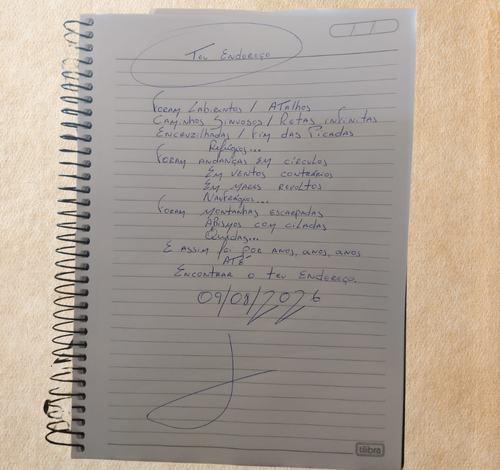 Teu Endereço
Foram Labirintos / Atalhos
Caminhos Sinuosos / Retas infinitas
Encruzilhadas / Fim das Picadas
Refúgios...
Foram andanças em círculos
Em ventos contrários
Em mares revoltos
Naufrágios...
Foram montanhas escarpadas
Abismos com ciladas
Quedas...
E assim foi por anos, anos, anos
Até
Encontrar o teu Endereço.
09/08/2026
tilibra